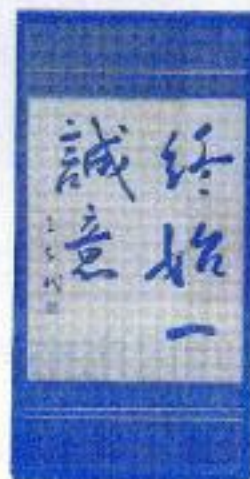 終始一
誠意